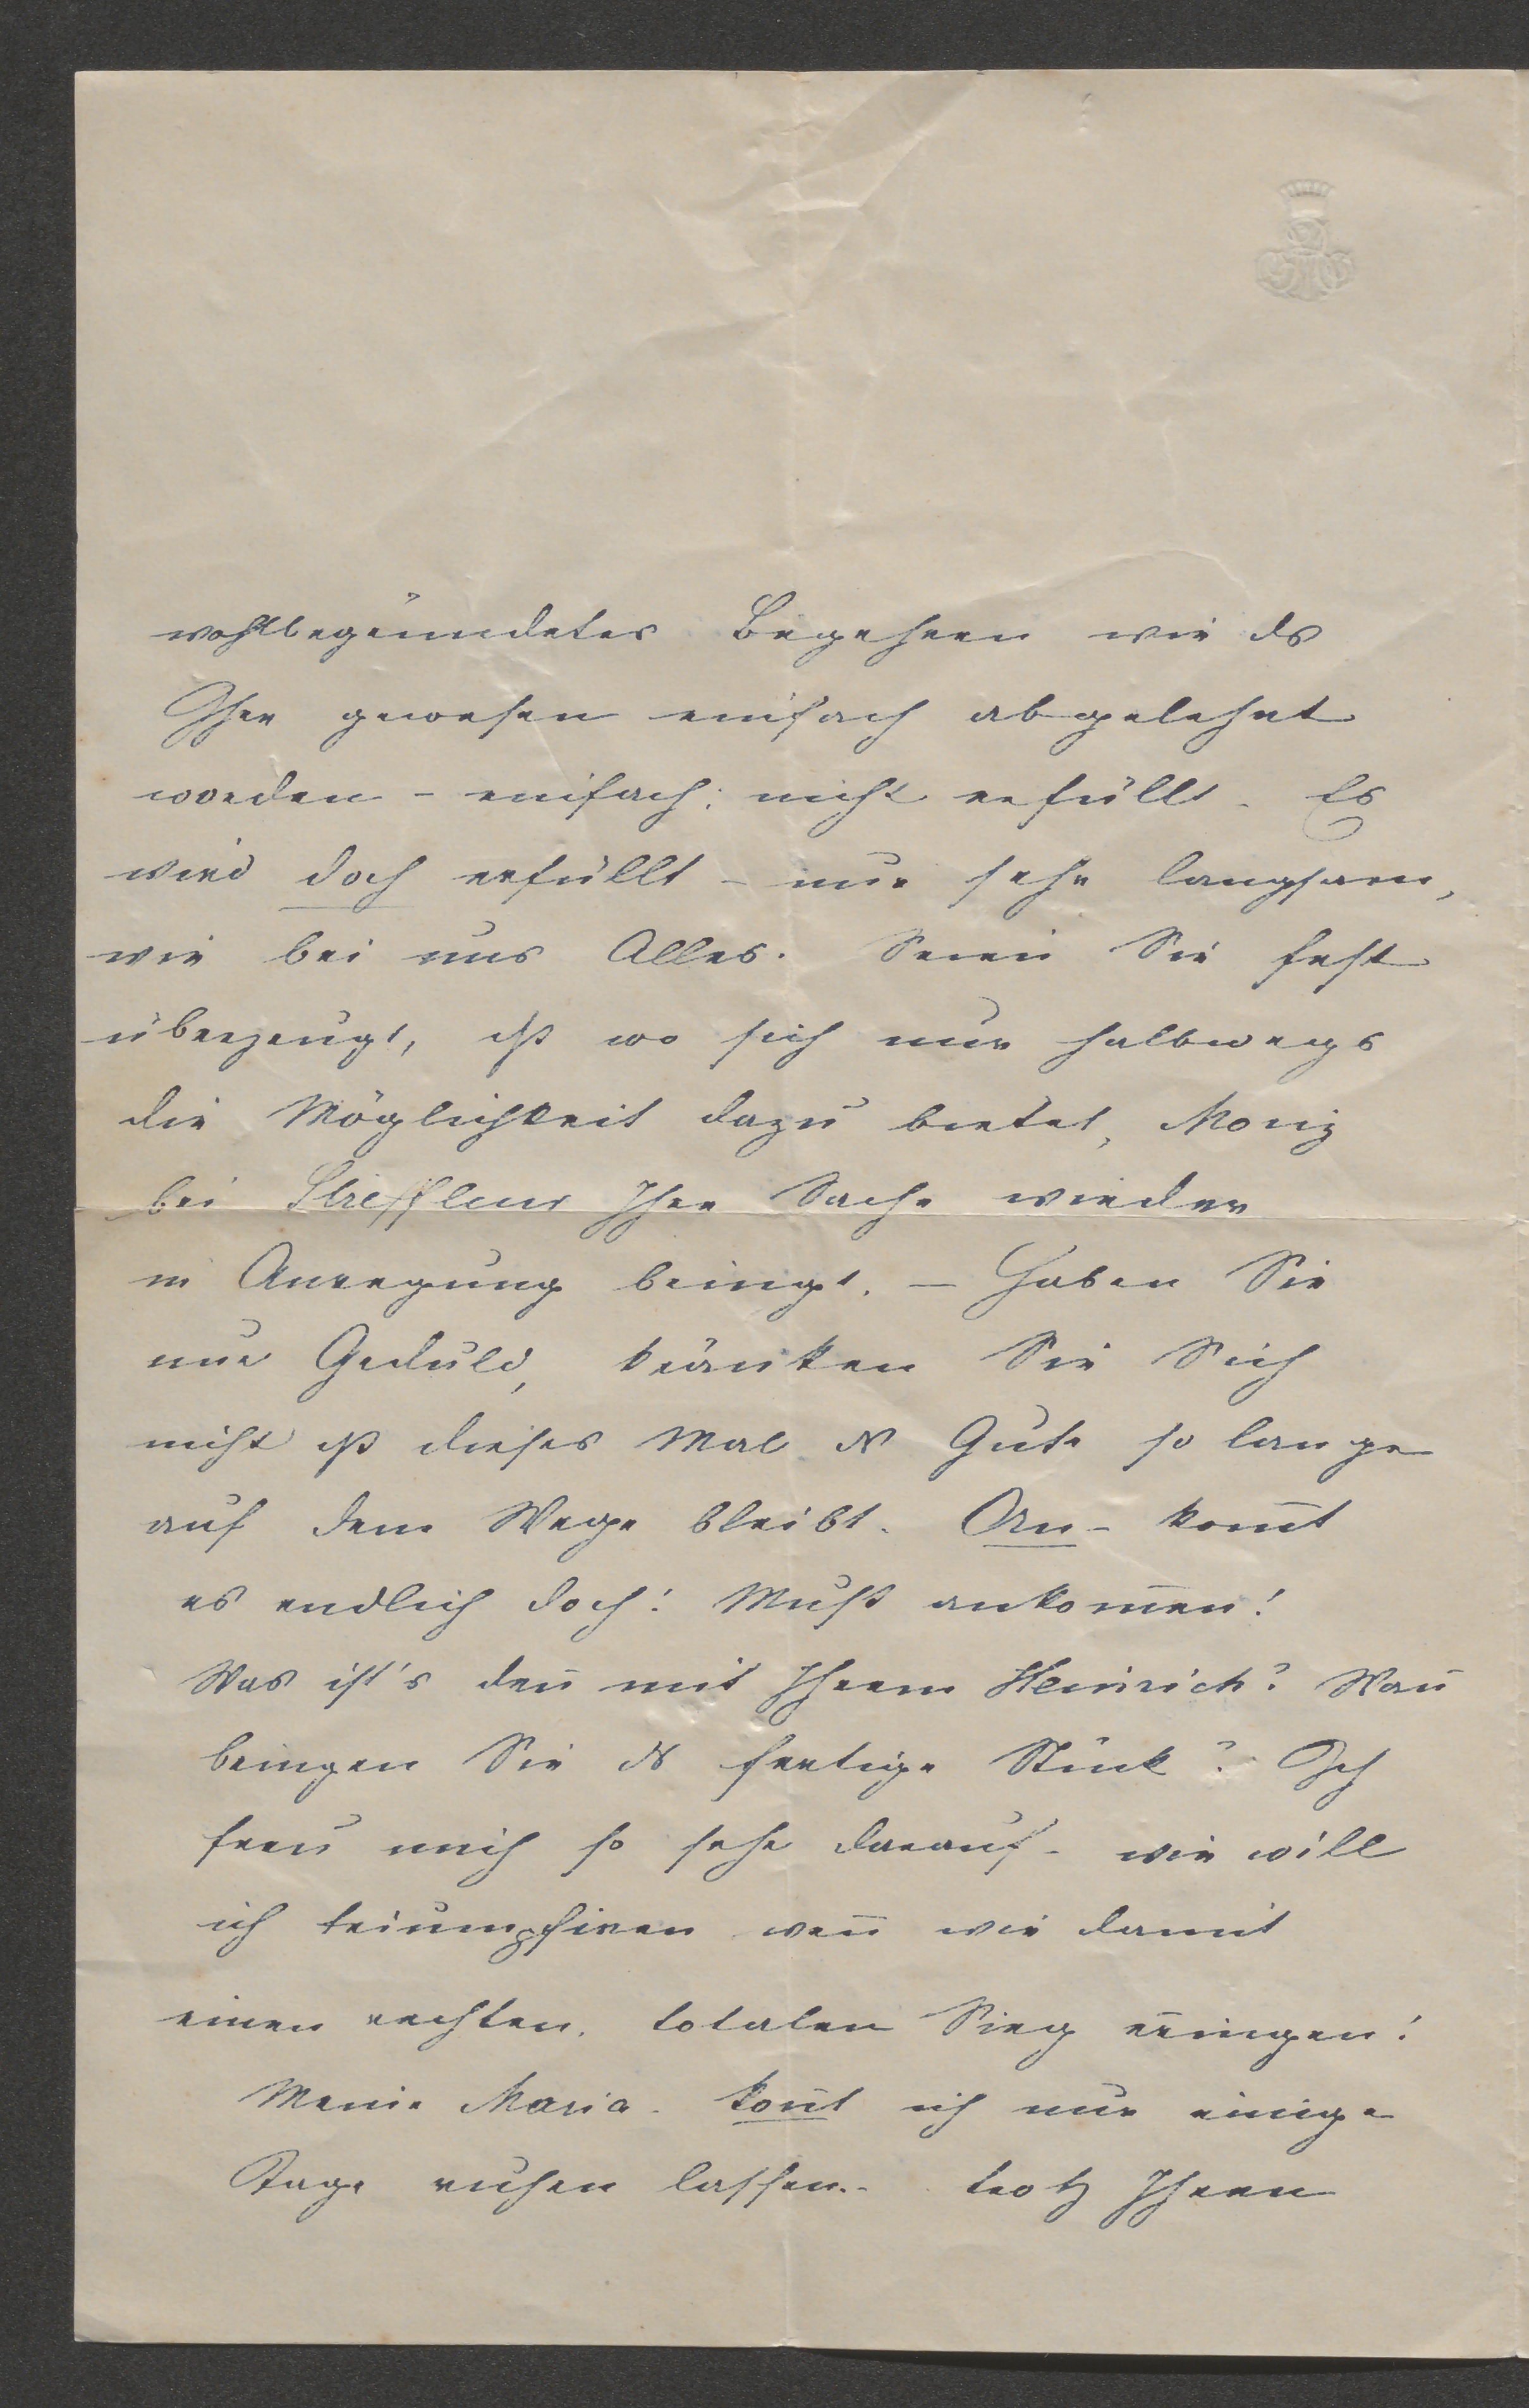 wohlbegründetes Begehren wie ds
Ihre gewesen einfach abgelehnt
worden – einfach: nicht erfüllt. Es
wird doch erfüllt – nur sehr langsam,
wie bei uns Alles. Seien Sie fest
überzeugt, dß wo sich nur halbwegs
die Möglichkeit dazu bietet, Moriz
bei Streffleur Ihre Sache wieder
in Anregung bringt. – Haben Sie
nur Geduld, kränken Sie Sich
nicht dß dieses Mal ds Gute so lange
auf dem Wege bleibt. An- kom̅t
es endlich doch! Muß ankom̅en!
Was ist's den̅ mit Ihrem Heinrich? Wan̅
bringen Sie ds fertige Stück? Ich
freu mich so sehr darauf – wie will
ich triumphiren wen̅ wir damit
einen rechten, totalen Sieg er̅ingen!
Meine Maria – kon̅t ich nur einige
Tage ruhen lassen – trotz Ihren